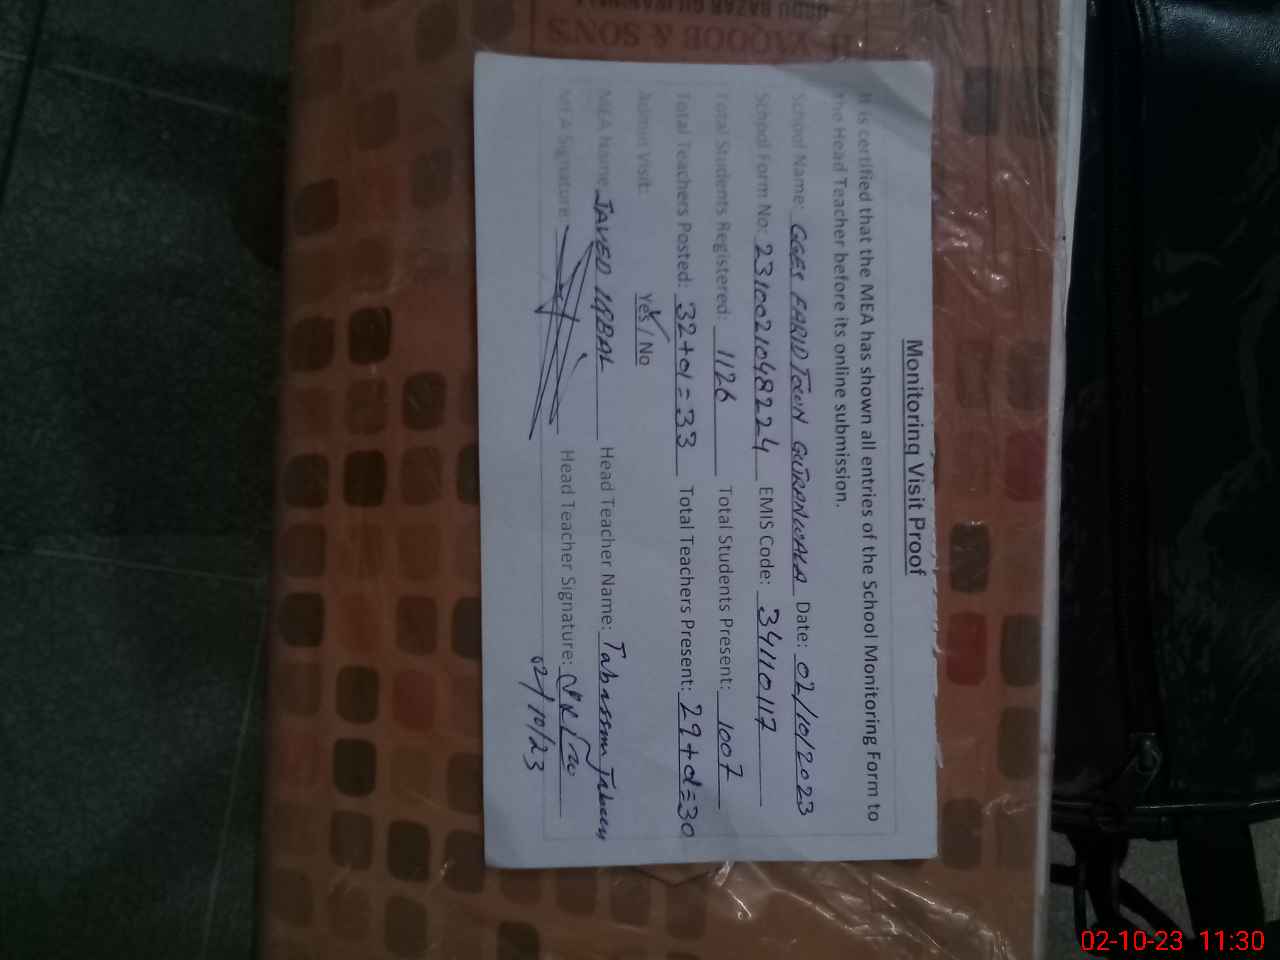 Monitoring Visit Proof
It is certified that the MEA has shown all entries of the School Monitoring Form to
the Head Teacher before its online submission.
School Name: GGES FARID TOWN GUJRANWALA Date: 02/10/2023
School Form No: 2310021048224 EMIS Code: 34110117
Total Students Registered: 1126 Total Students Present: 1007
Total Teachers Posted: 32+01=33 Total Teachers Present: 29+01=30
Admin Visit: Yes / No
MEA Name: JAVED IQBAL Head Teacher Name: Tabassum
MEA Signature: Head Teacher Signature:
02/10/23
YAQOOB & SONS
URDU BAZAR
02-10-23 11:30